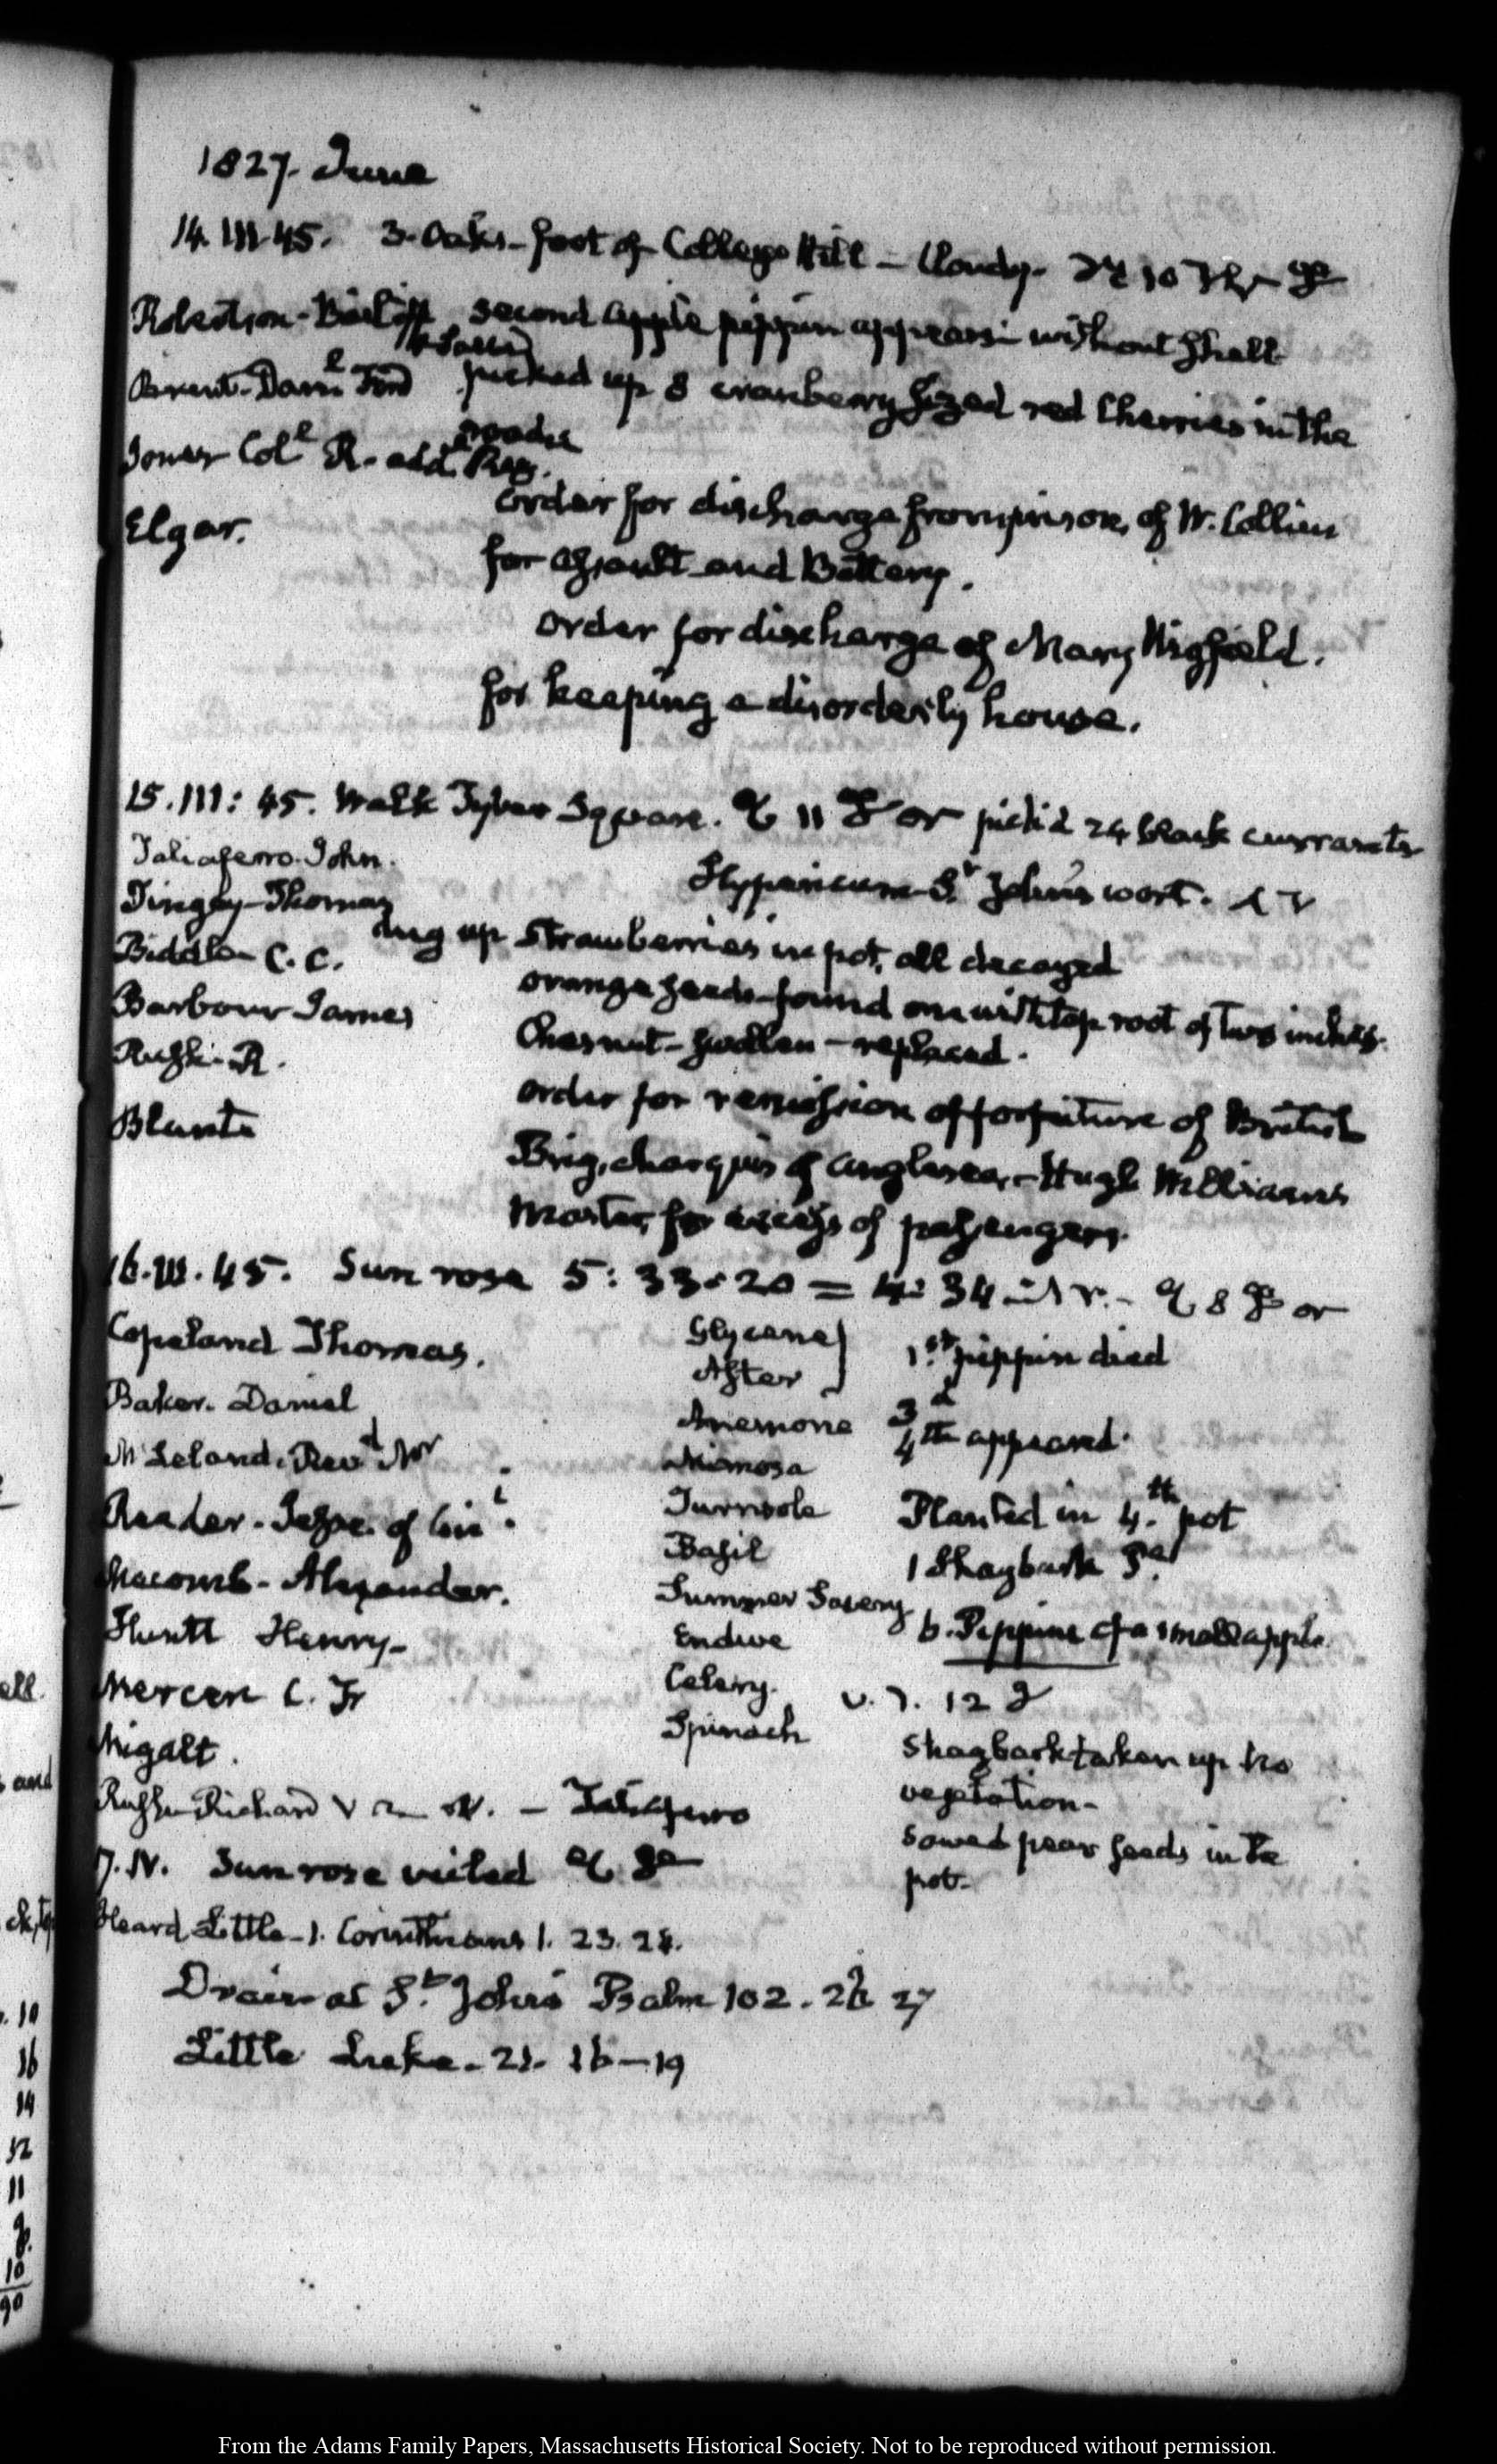 1827. June
14. III. 45. 3. Oaks - foot of College Hill - Cloudy.
Robertson - second apple pippin appears - without shell
Brent - picked up 8 cranberry sized red Cherries in the
roads
Jones Col.l R. add.
Elgar.
order for discharge from prison, of W. Collins
for assault and Battery.
order for discharge of Mary Wigfield.
for keeping a disorderly house.
15. III: 45. Walk Tyber Square. 11 pick'd 24 black currants
Taliaferro. John.
Hypericum S.t John's wort.
Tingey - Thomas
dug up strawberries in pot, all decayed
Biddle C. C.
orange seeds - found one with tap root of two inches.
Barbour James
Chesnut - swollen - replaced.
Rush - R.
order for remission of forfeiture of British
Blunt
Brig, of Anglesea, - Hugh Williams
Master, for excess of passengers.
16. III. 45. Sun rose 5: 33. 20 = 4: 34 8
Copeland Thomas.
Baker. Daniel
McLeland. Rev.d Mr
Reader - of
Macomb - Alexander.
Huntt Henry -
Mercer C. F.
Wigalt.
Rush Richard - Taliaferro
Glycene
Aster
Anemone
Mimosa
Turnsole
Basil
Summer Savory
Endive
Celery.
Spinach
1.st pippin died
3.d
4.th appeared.
Planted in 4.th pot
1 Shagbark
6. Pippins of a small apple.
V. 7. 12
Shagbark taken up no
vegetation -
Sowed pear seeds in the
pot.
17. IV. Sun rose veiled
Heard Little - 1. Corinthians 1. 23. 24.
Drain at S.t John's Psalm 102. 26 27
Little Luke. 21. 16-19
ell.
and
10
16
14
12
11
9.
10
90
From the Adams Family Papers, Massachusetts Historical Society. Not to be reproduced without permission.